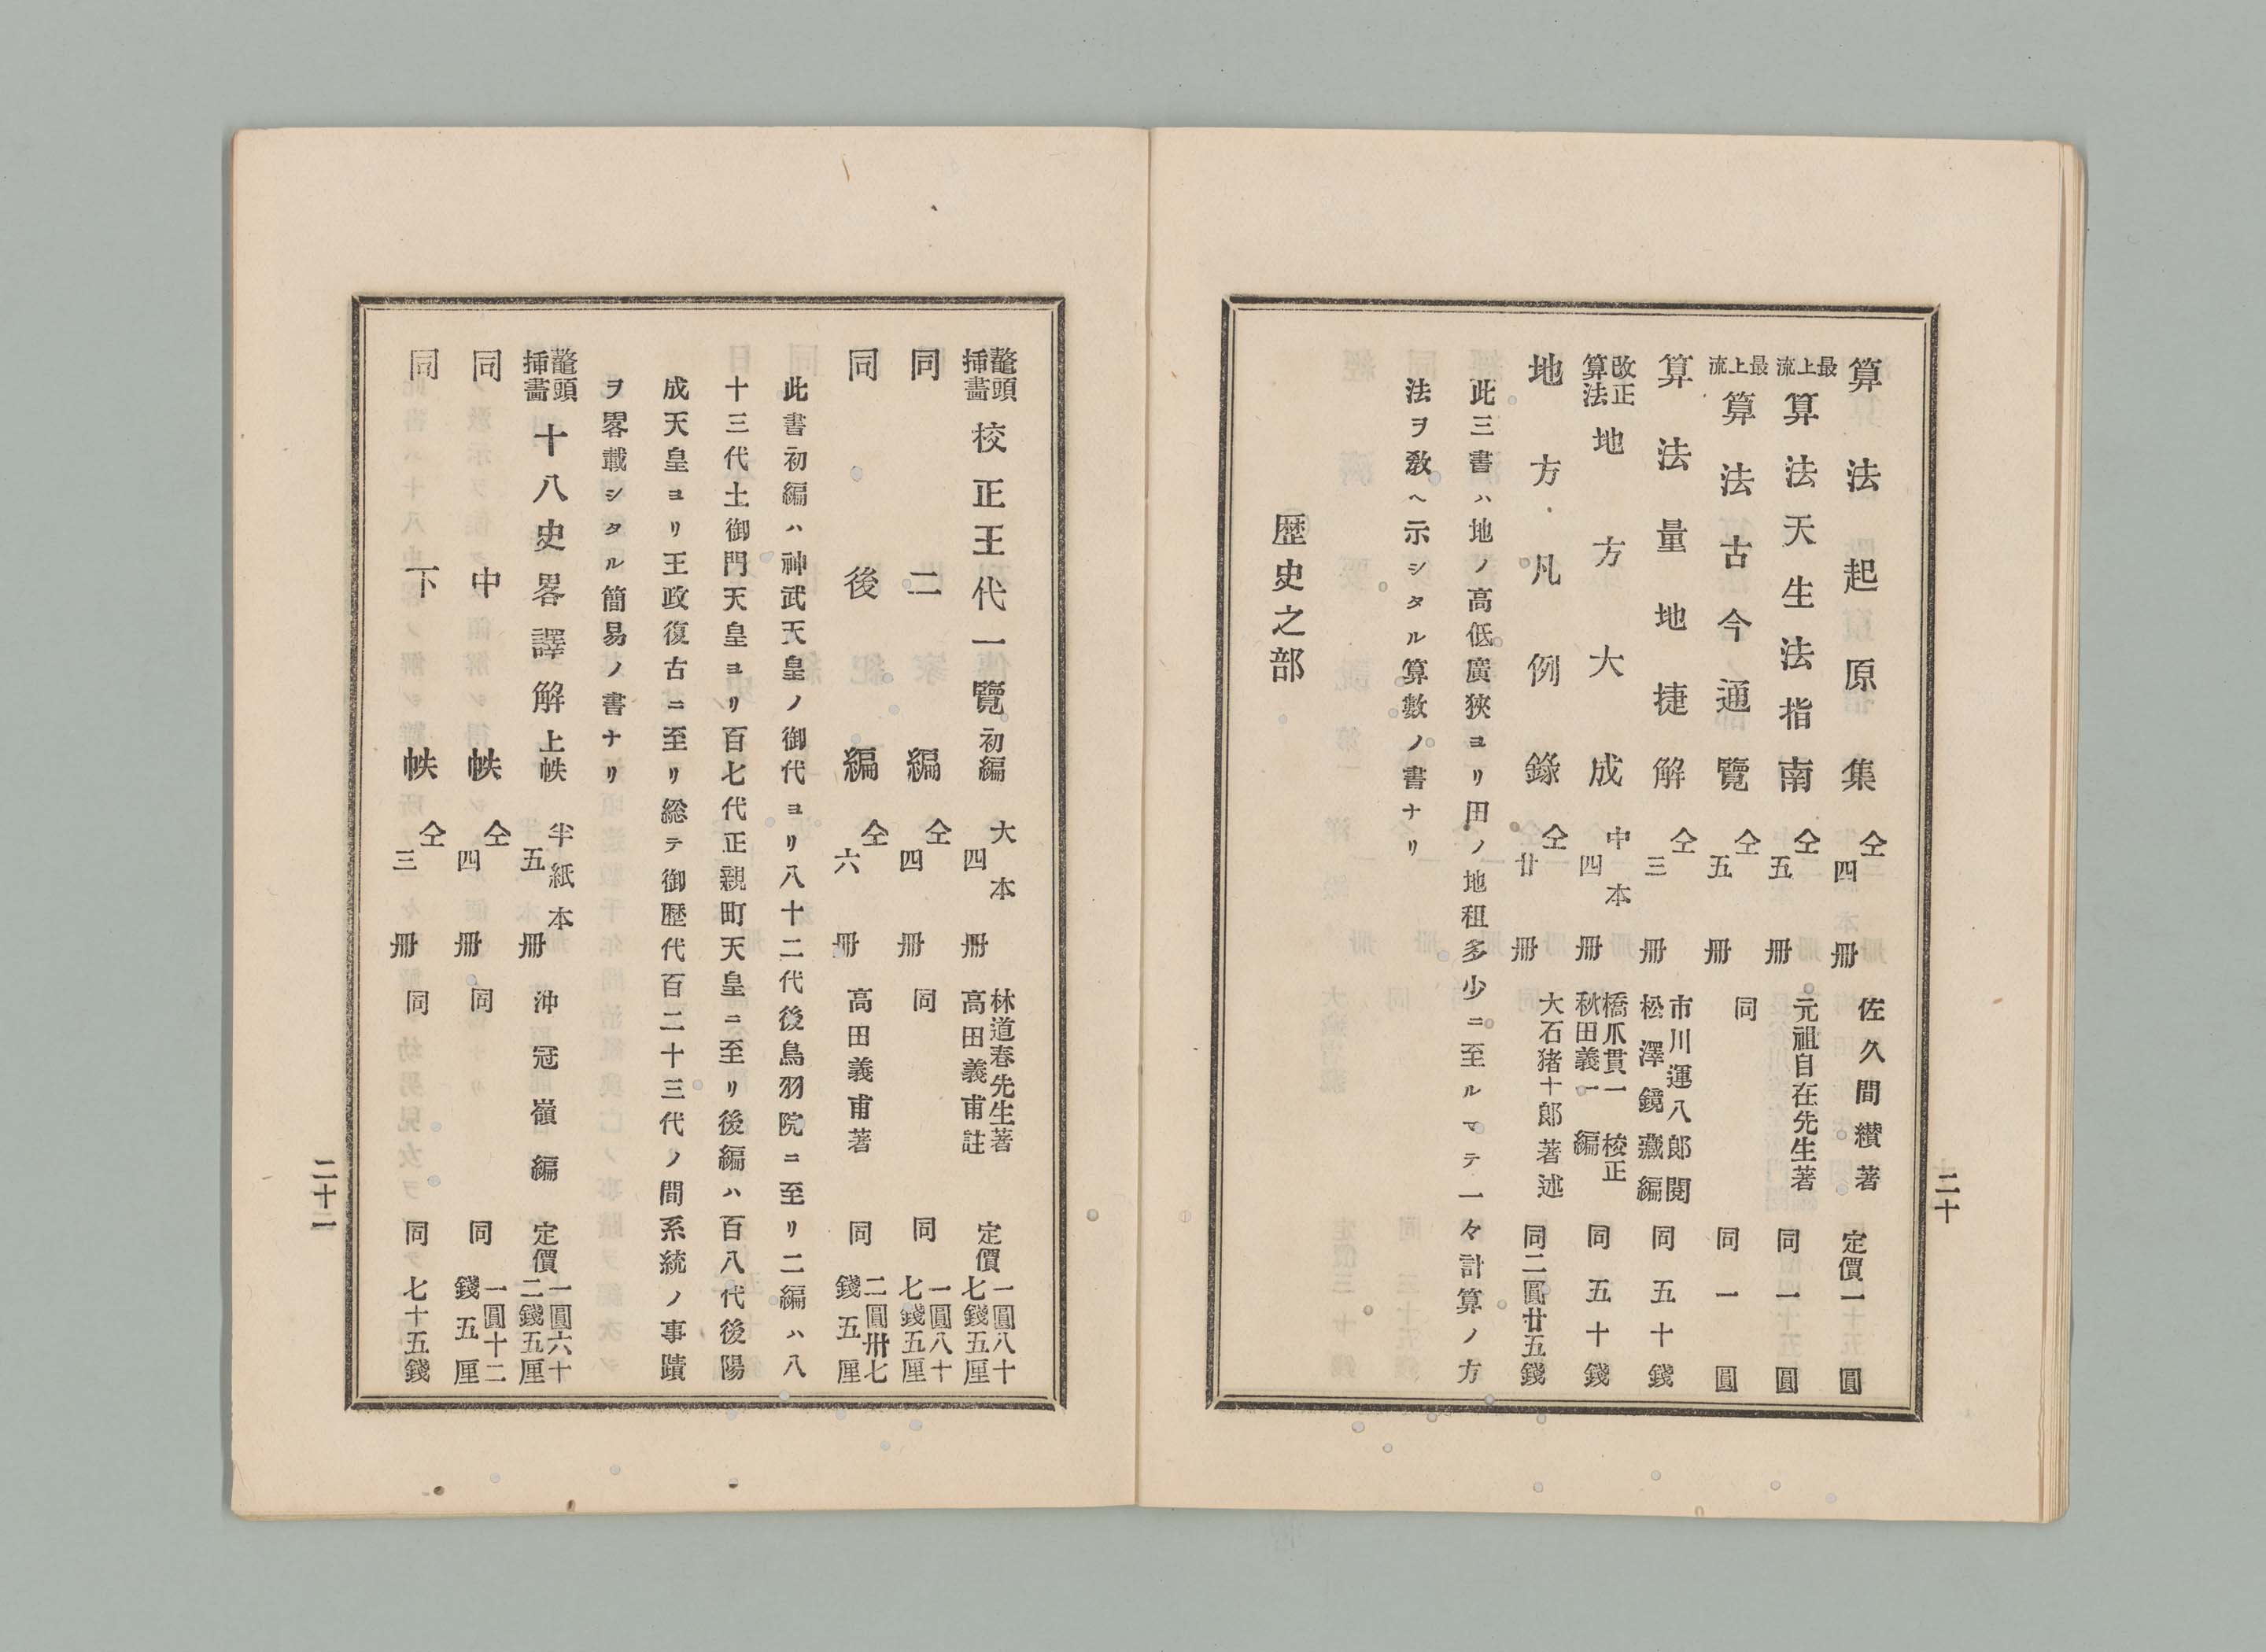 算法起原集 仝四冊 佐久間纉著 定價一圓
最上流算法天生法指南 仝五冊 元祖自在先生著 同一圓
最上流算法古今通覽 仝五冊 同 同一圓
算法量地捷解 仝三冊 市川運八郎閱 松澤鏡藏編 同五十錢
改正算法地方大成 中本四冊 橋爪貫一校正 秋田義一編 同五十錢
地方凡例錄 仝廿冊 大石猪十郎著述 同二圓廿五錢
此三書ハ地ノ高低廣狹ヨリ田ノ地租多少ニ至ルマテ一々計算ノ方
法ヲ敎ヘ示シタル算數ノ書ナリ
歷史之部
二十
鼇頭挿畵校正王代一覽初編 大本四冊 林道春先生著 高田義甫註 定價一圓八十七錢五厘
同二編 仝四冊 同 同一圓八十七錢五厘
同後編 仝六冊 高田義甫著 同二圓卅七錢五厘
此書初編ハ神武天皇ノ御代ヨリ八十二代後鳥羽院ニ至リ二編ハ八
十三代土御門天皇ヨリ百七代正親町天皇ニ至リ後編ハ百八代後陽
成天皇ヨリ王政復古ニ至リ総テ御歷代百二十三代ノ間系統ノ事蹟
ヲ畧載シタル簡易ノ書ナリ
鼇頭挿畵十八史畧譯解上帙 半紙本五冊 沖冠嶺編 定價一圓六十二錢五厘
同中帙 仝四冊 同 同一圓十二錢五厘
同下帙 仝三冊 同 同七十五錢
二十一